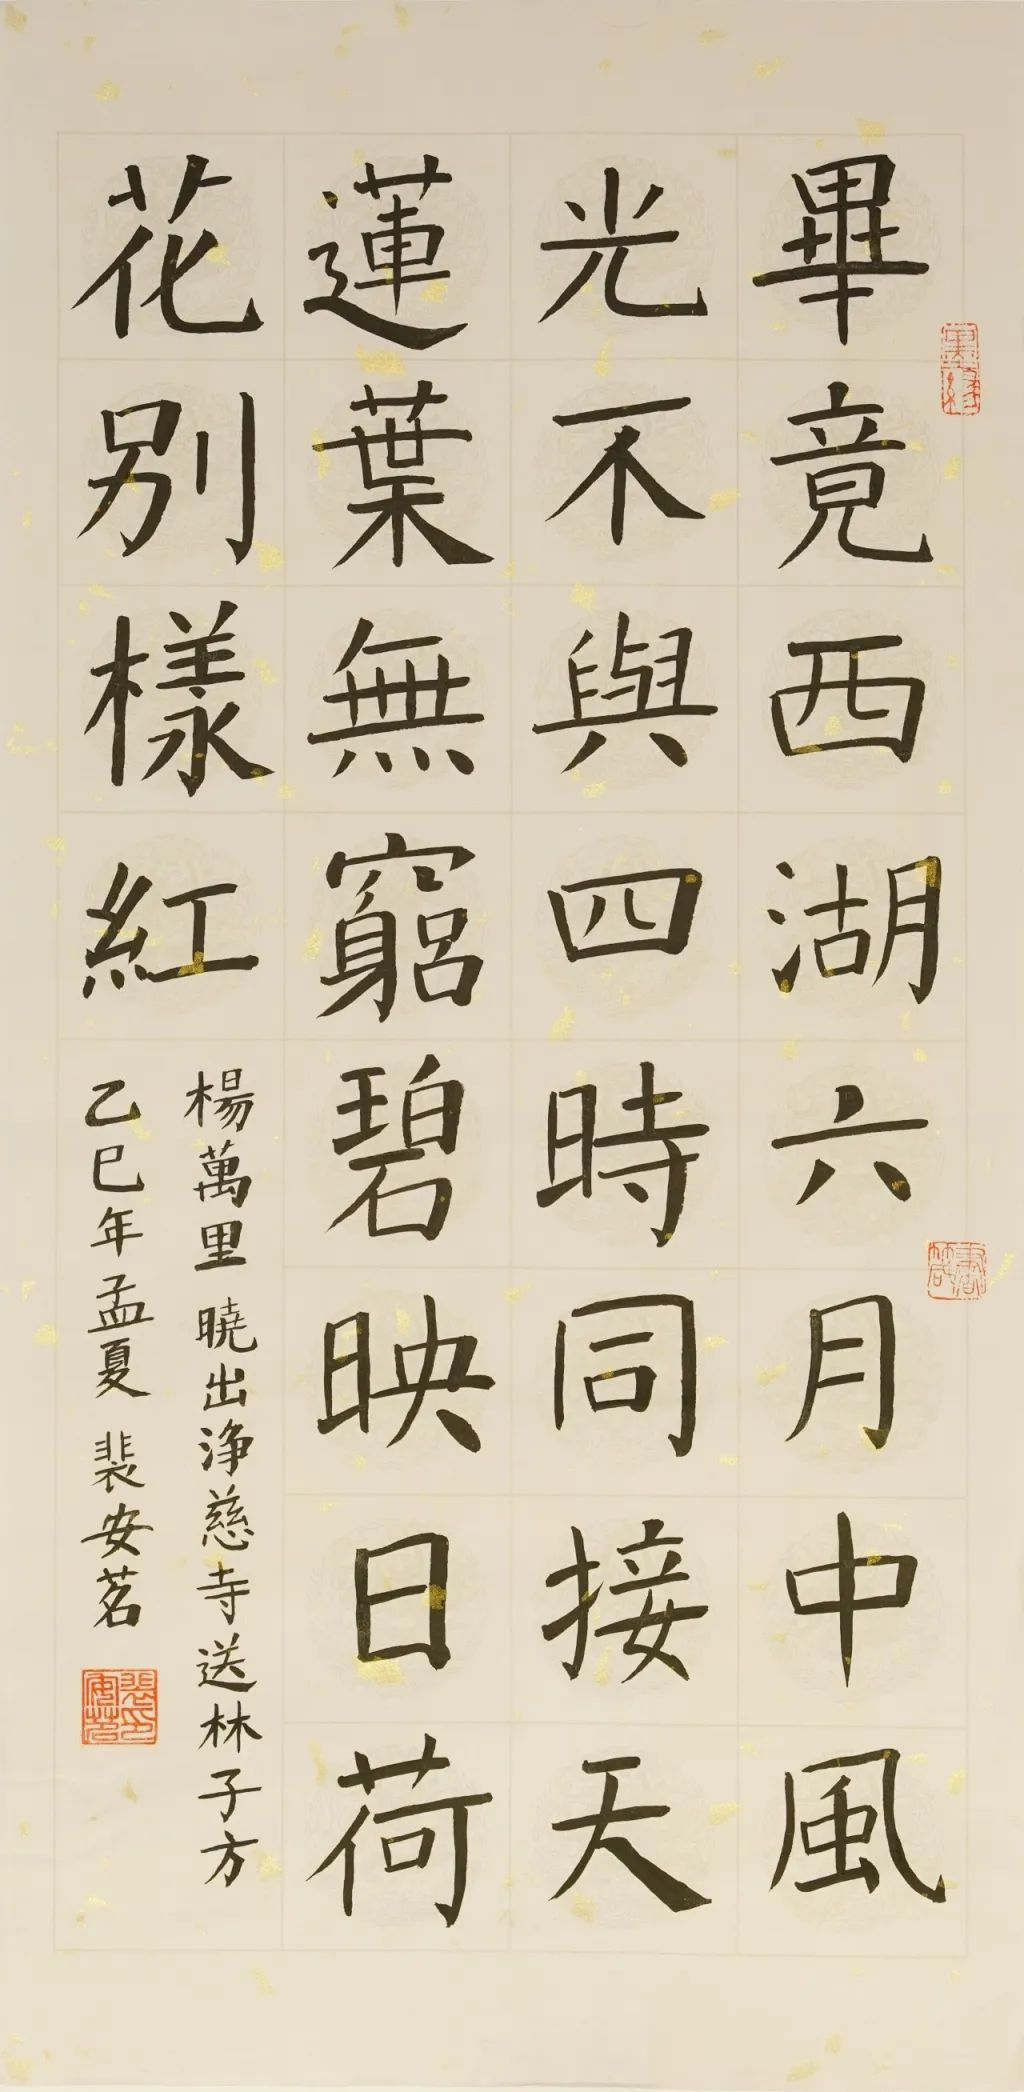 畢竟西湖六月中風
光不與四時同接天
蓮葉無窮碧映日荷
花別樣紅
楊萬里 曉出淨慈寺送林子方
乙巳年孟夏 裴安茗
裴安茗印